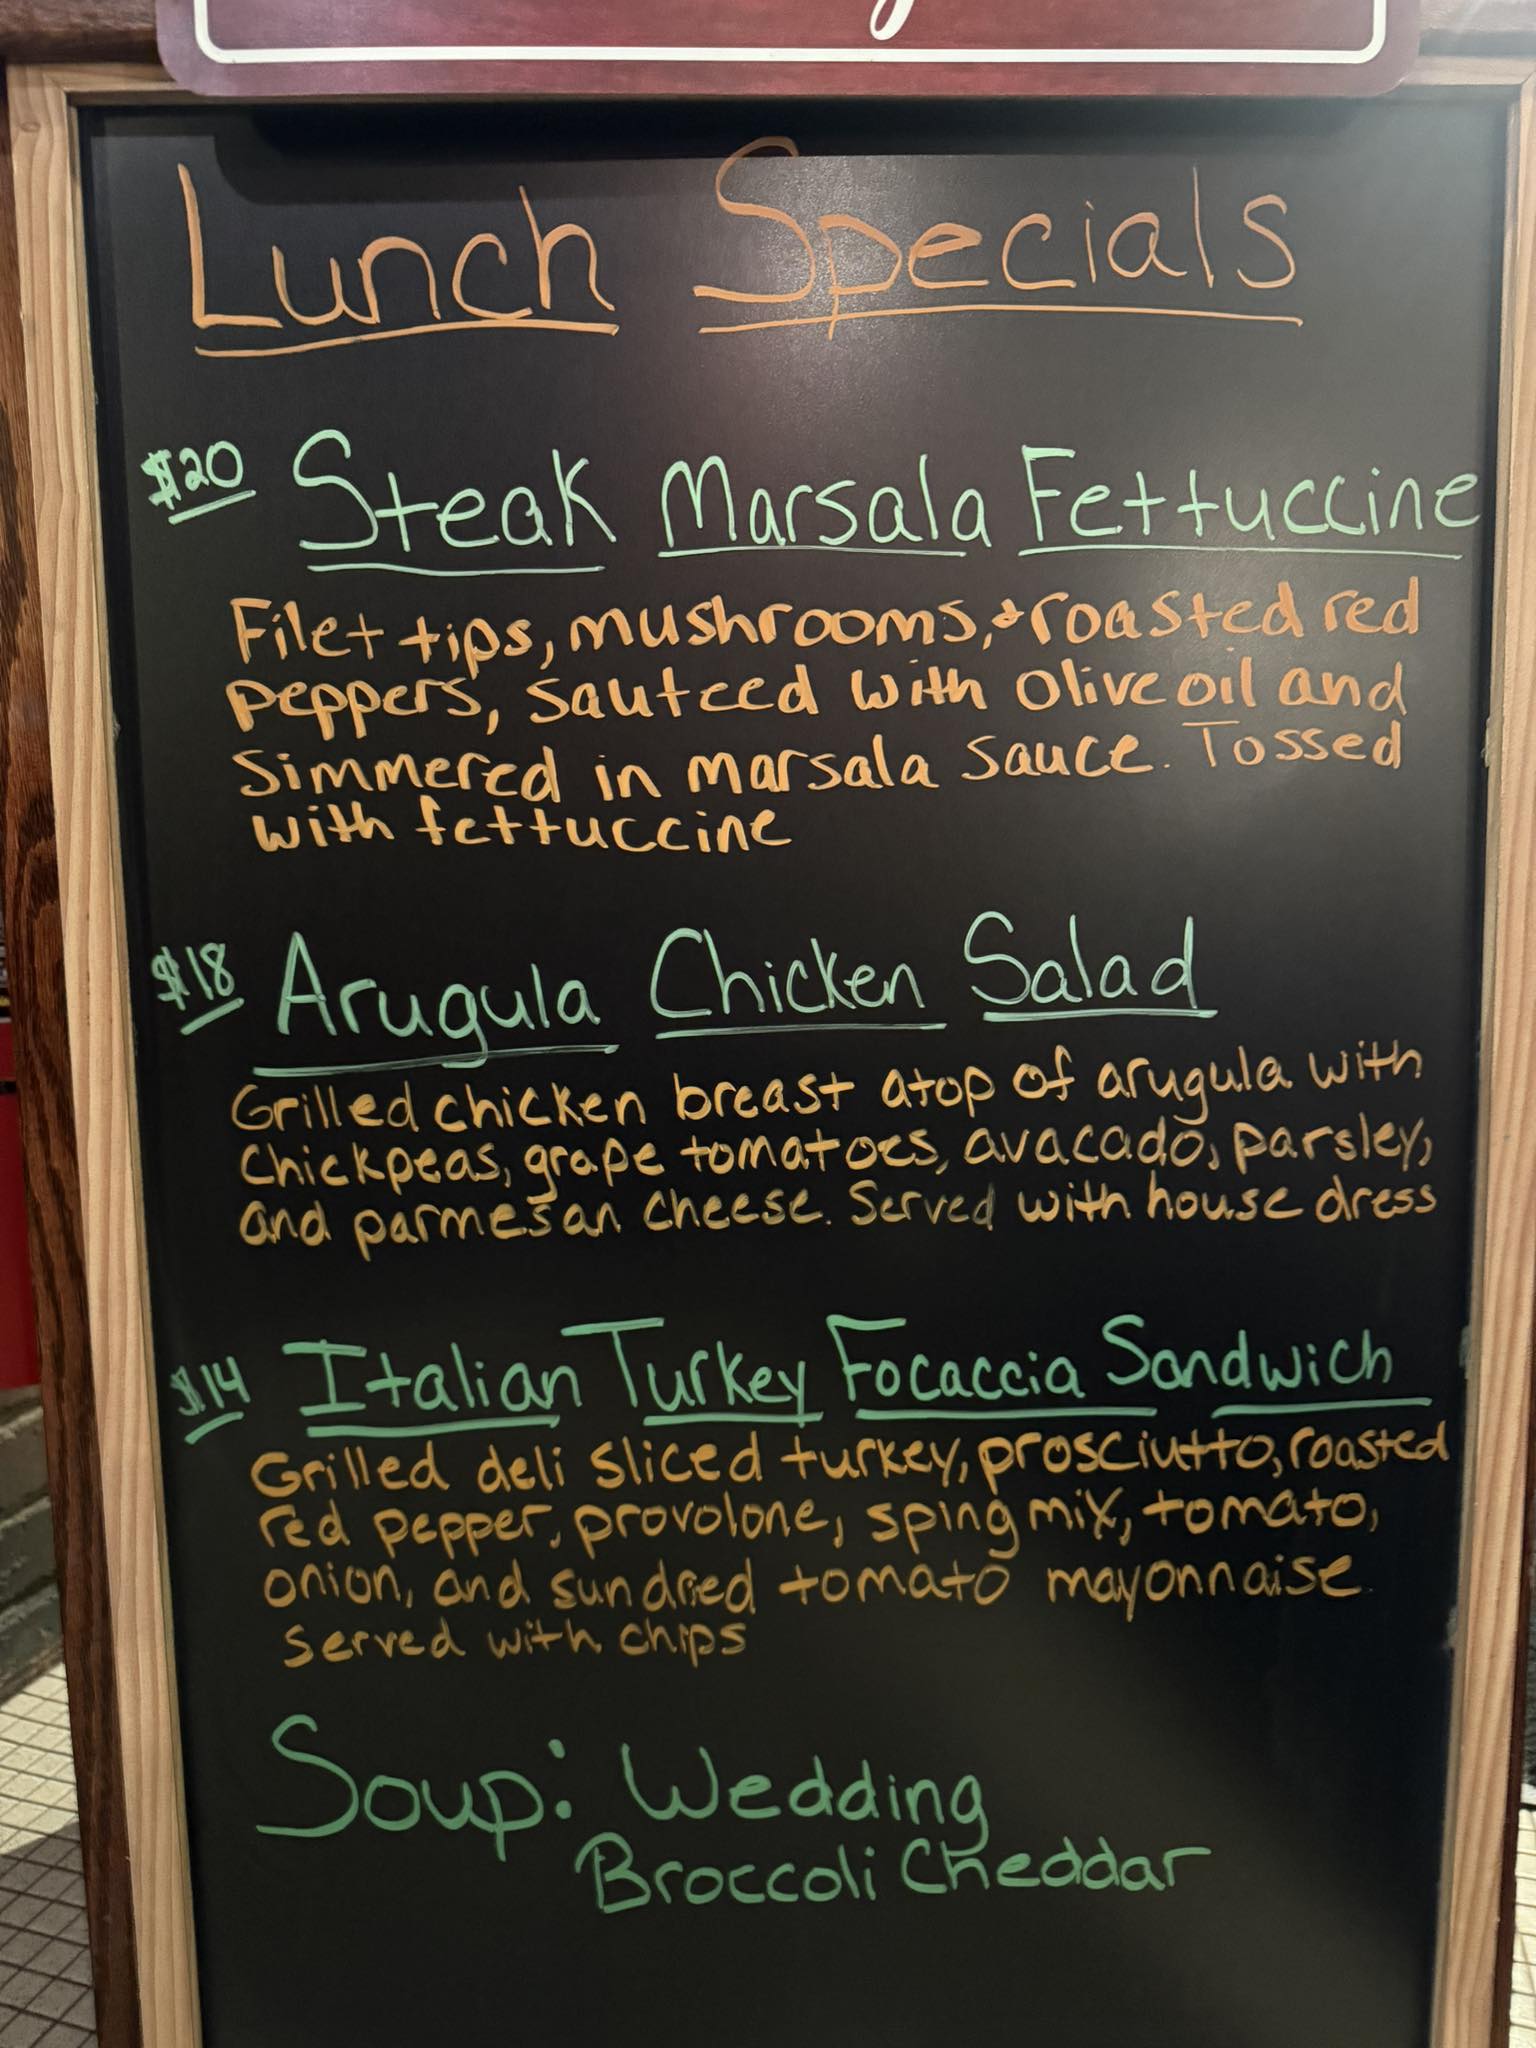 Lunch Specials
$20 Steak Marsala Fettuccine
Filet tips, mushrooms, + roasted red
peppers, sauteed with olive oil and
simmered in marsala sauce. Tossed
with fettuccine
$18 Arugula Chicken Salad
Grilled chicken breast atop of arugula with
chickpeas, grape tomatoes, avacado, parsley,
and parmesan cheese. Served with house dress
$14 Italian Turkey Focaccia Sandwich
Grilled deli sliced turkey, prosciutto, roasted
red pepper, provolone, sping mix, tomato,
onion, and sundried tomato mayonnaise
served with chips
Soup: Wedding
Broccoli Cheddar